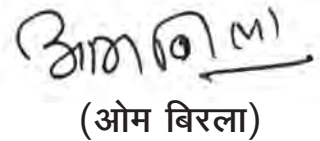 ओम बिरला
(ओम बिरला)